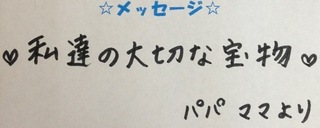 ☆メッセージ☆
♥私達の大切な宝物♥
パパ ママより